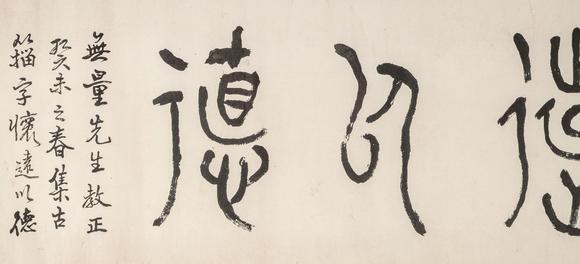 以德
無量先生教正
癸未之春集古
籀字懷遠以德